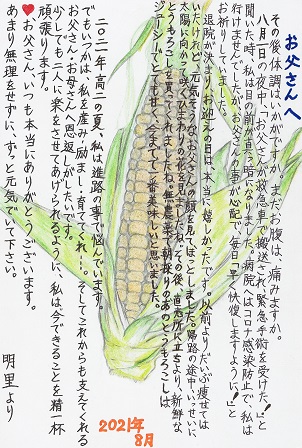 お父さんへ
その後体調はいかがですか。まだお腹は、痛みますか。
八月一日の夜中に「お父さんが救急車で搬送され、緊急手術を受けた!」と
聞いた時、私は目の前が真っ暗になりました。病院へはコロナ感染防止で、私は
行けませんでしたが、お父さんの事が心配で、毎日「早く快復しますように!」と
お祈りしていました。
退院が決まり、お迎えの日は、本当に嬉しかったです。以前よりだいぶ痩せては
いたけれど、元気そうなお父さんの顔を見てほっとしました。帰路の途中、いっせいに
太陽に向かって咲くひまわりの花を見ましたね。その後、直売所に立ちより、新鮮な
とうもろこしを買ってくれましたね。無農薬で朝採りのあのとうもろこしは
ジューシーでとても甘く、今までで一番美味しいと思いました。
二〇二一年、高二の夏、私は進路の事で悩んでいます。
でもいつかは、私を産み・励まし・育ててくれ…、そしてこれからも支えてくれる
お父さん・お母さんへ恩返しがしたいです。
少しでも二人に楽をさせてあげられるように、私は今できることを精一杯
頑張ります。
♥お父さん、いつも本当にありがとうございます。
あまり無理をせずに、ずっと元気でいて下さい。
明里より
2021年
8月